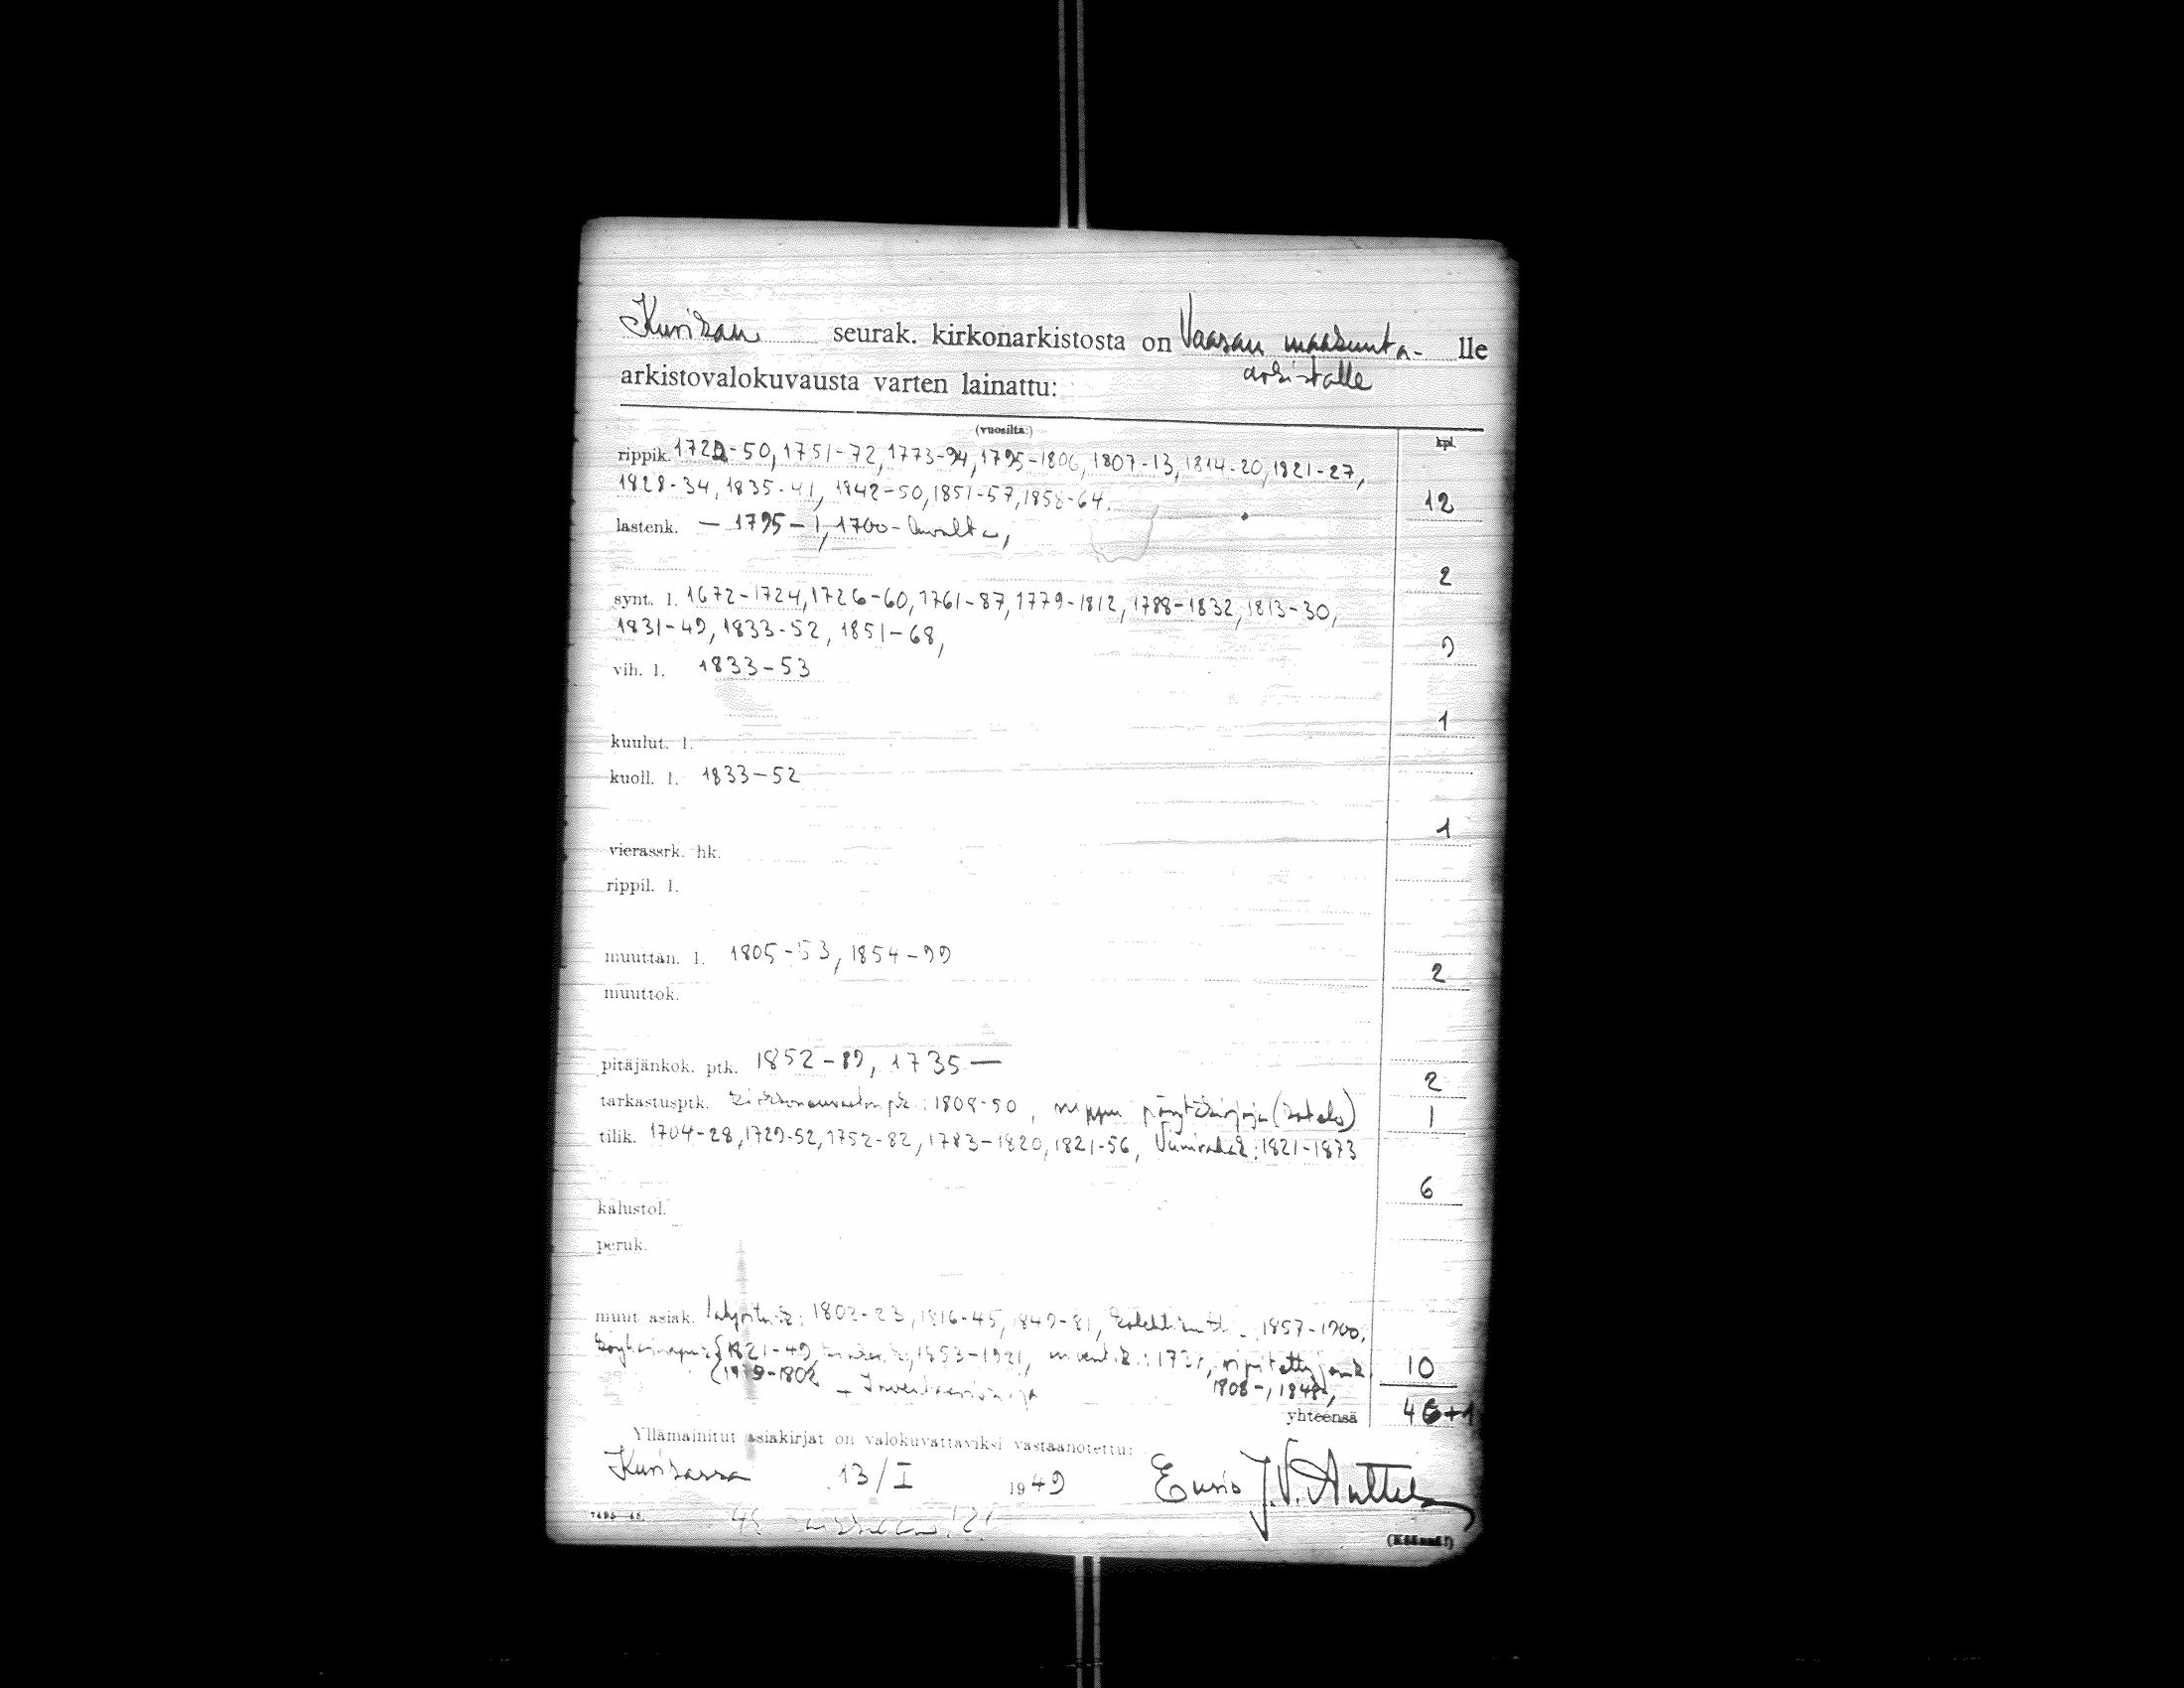 Kurikan seurak. kirkonarkistosta on Vaasan maakunta- lle
arkistalle
arkistovalokuvausta varten lainattu:
(vuosilta:) kpl.
rippik. 1722-50, 1751-72, 1773-94, 1795-1806, 1807-13, 1814-20, 1821-27,
1828-34, 1835-41, 1842-50, 1851-57, 1858-64. 12
lastenk. — 1795 — 1, 1700-luvulta,
2
synt. l. 1672-1724, 1726-60, 1761-87, 1779-1812, 1788-1832, 1813-30,
1831-49, 1833-52, 1851-68, 9
vih. l. 1833-53
1
kuulut. l.
kuoll. l. 1833-52
1
vierassrk. hk.
rippil. l.
muuttan. l. 1805-53, 1854-99
2
muuttok.
pitäjänkok. ptk. 1852-89, 1735 —
2
tarkastusptk. : 1808-50, nippu pöytäkirjoja (kotelo) 1
tilik. 1704-28, 1729-52, 1752-82, 1783-1820, 1821-56, Viinirahak: 1821-1873
6
kalustol.
peruk.
muut asiak. : 1802-23, 1816-45, 1849-81, 1857-1900,
1821-49, 1853-1921, 10
-1802 1808-, 1848,
yhteensä 46+1
Yllämainitut asiakirjat on valokuvattaviksi vastaanotettu:
Kurikassa 13/I 1949 Eunio J.V. Anttila
(Käännä!)